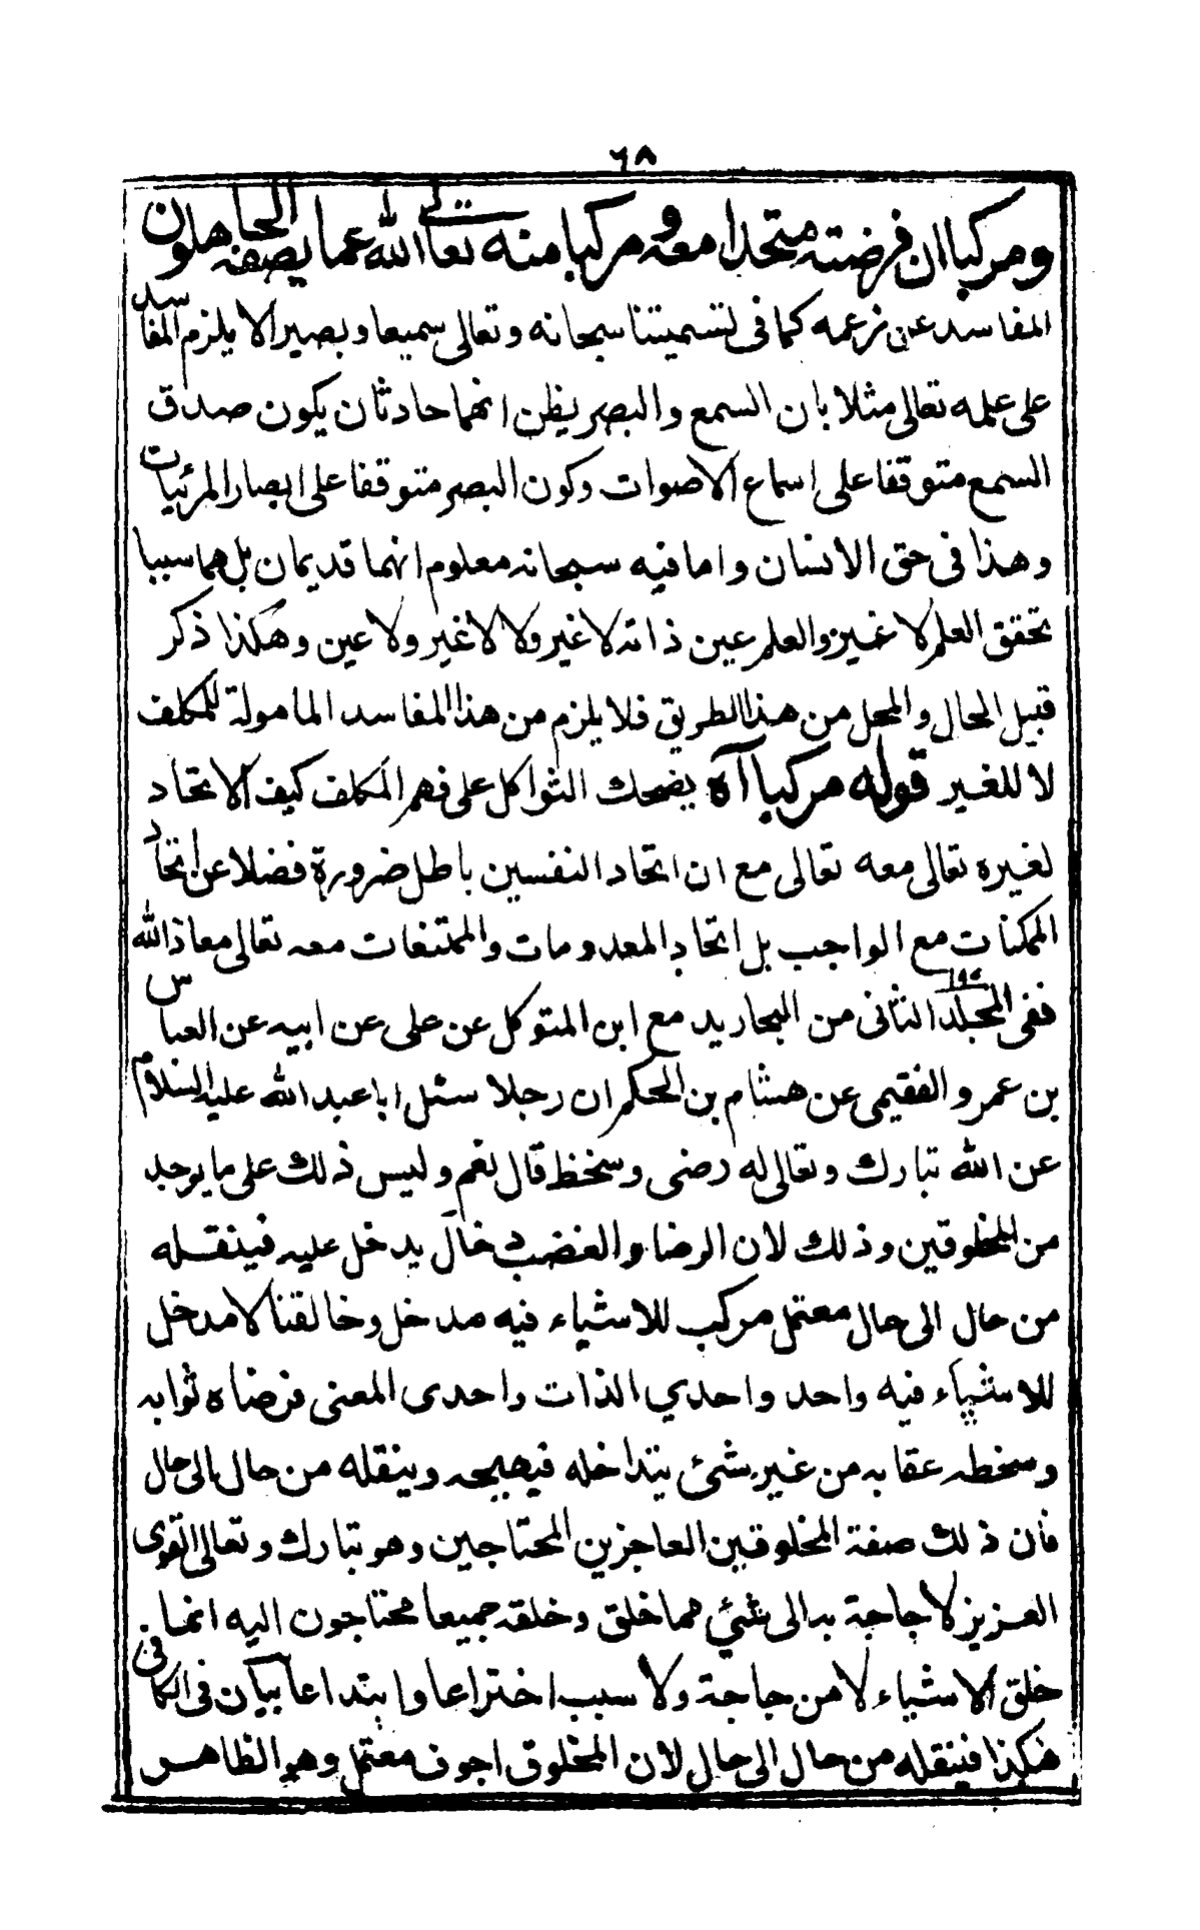 ٦٨
ومركبا ان فرضته متحدا معه ومركبا منه تعالى الله عما يصفه الجاهلون
المفاسد عن زعمه كما فى تسميتنا سبحانه وتعالى سميعا وبصيرا لا يلزم المفاسد
على علمه تعالى مثلا بان السمع والبصر يظن انهما حادثان يكون صدق
السمع متوقفا على اسماع الاصوات وكون البصر متوقفا على ابصار المرئيات
وهذا فى حق الانسان واما فيه سبحانه معلوم انهما قديمان بل هما سببا
تحقق العلم لا غير والعلم عين ذاته لا غير ولا لا غير ولا عين وهكذا ذكر
قبيل الحال والمحل من هذا الطريق فلا يلزم من هذا المفاسد المامولة للمكلف
لا للغير قوله مركبا آه يضحك الثواكل على فهم المكلف كيف الاتحاد
لغيره تعالى معه تعالى مع ان اتحاد النفسين باطل ضرورة فضلا عن اتحاد
الممكنات مع الواجب بل اتحاد المعدومات والممتنعات معه تعالى معاذ الله
ففى المجلد الثانى من البحار يد مع ابن المتوكل عن على عن ابيه عن العباس
بن عمرو الفقيمى عن هشام بن الحكم ان رجلا سئل ابا عبد الله عليه السلام
عن الله تبارك وتعالى له رضى وسخط قال نعم وليس ذلك على ما يوجد
من المخلوقين وذلك لان الرضا والغضب دخال يدخل عليه فينقله
من حال الى حال معتمل مركب للاشياء فيه مدخل وخالقنا لا مدخل
للاشياء فيه واحد واحدي الذات واحدى المعنى فرضاه ثوابه
وسخطه عقابه من غير شئ يتداخله فيهيجه وينقله من حال الى حال
فان ذلك صفة المخلوقين العاجزين المحتاجين وهو تبارك وتعالى القوى
العزيز لا حاجة به الى شئ مما خلق وخلقه جميعا محتاجون اليه انما
خلق الاشياء لا من حاجة ولا سبب اختراعا وابتداعا بيان فى الكافى
هكذا فينقله من حال الى حال لان المخلوق اجوف معتمل وهو الظاهر